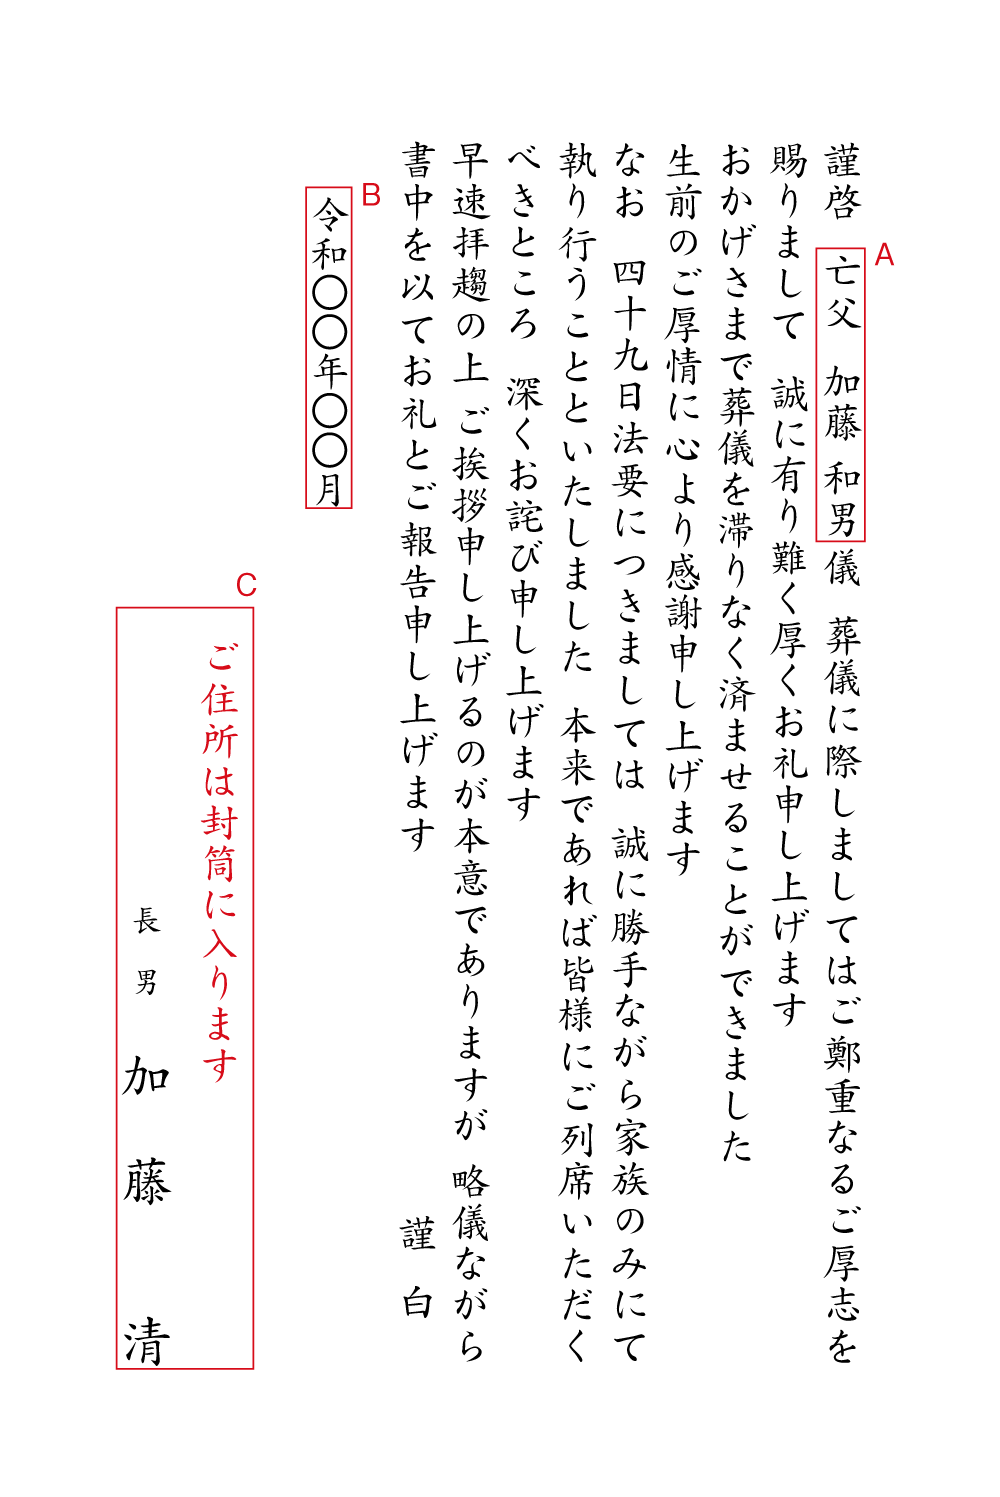 A
謹啓　亡父　加藤　和男　儀　葬儀に際しましてはご鄭重なるご厚志を
賜りまして　誠に有り難く厚くお礼申し上げます
おかげさまで葬儀を滞りなく済ませることができました
生前のご厚情に心より感謝申し上げます
なお　四十九日法要につきましては　誠に勝手ながら家族のみにて
執り行うことといたしました　本来であれば皆様にご列席いただく
べきところ　深くお詫び申し上げます
早速拝趨の上　ご挨拶申し上げるのが本意でありますが　略儀ながら
書中を以てお礼とご報告申し上げます
謹　白
B
令和〇〇年〇〇月
C
ご住所は封筒に入ります
長　男　加　藤　清